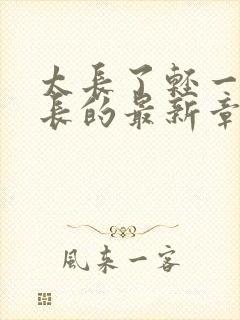 太長了輕一
長的最新章
風来一客